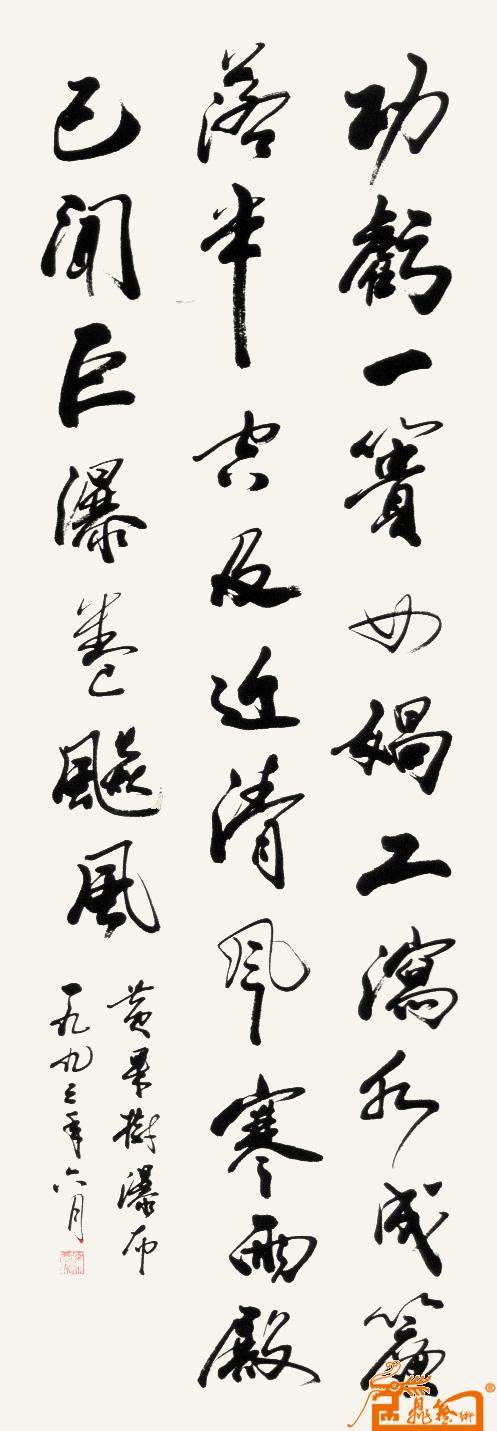 功虧一簣女媧工瀉水成簾
落半空及近清風寒雨殿
已聞巨瀑卷飈風
黄果樹瀑布
一九九三年六月